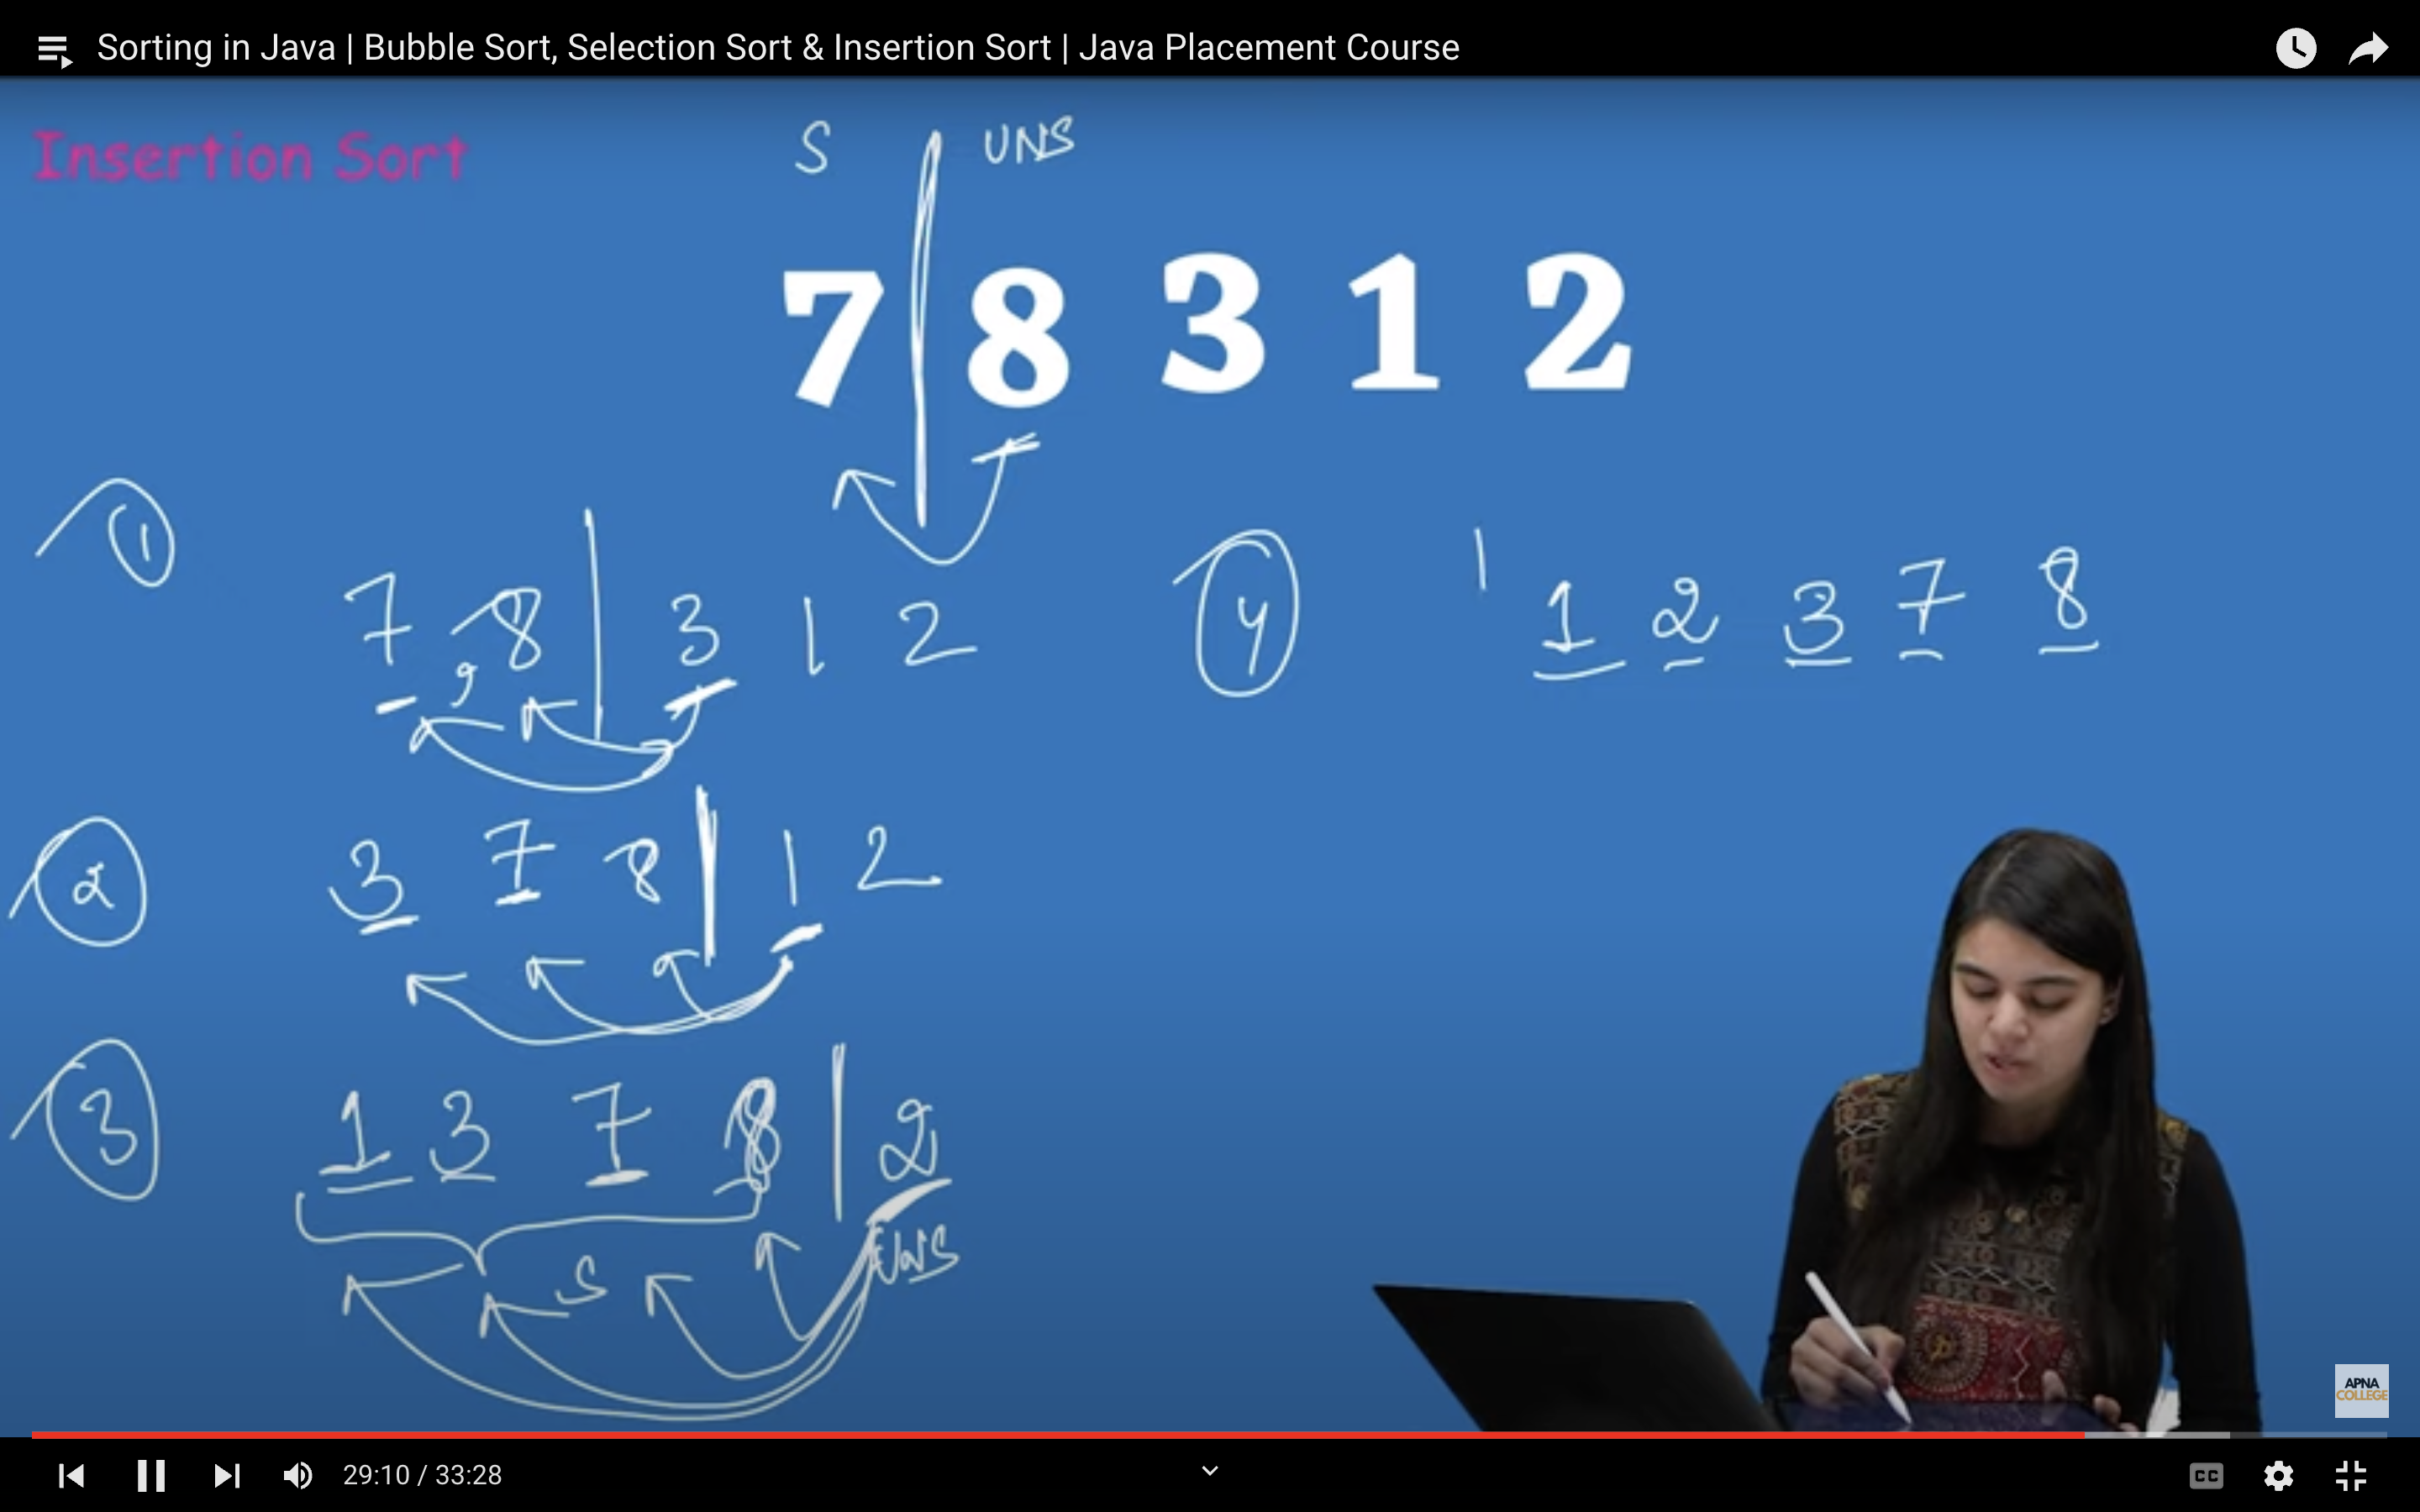 Sorting in Java | Bubble Sort, Selection Sort & Insertion Sort | Java Placement Course
Insertion Sort
S UNS
7 8 3 1 2
1
7 , 8 | 3 1 2
2
3 7 8 | 1 2
3
1 3 7 8 | 2
S UNS
4
1 1 2 3 7 8
APNA
COLLEGE
29:10 / 33:28
CC